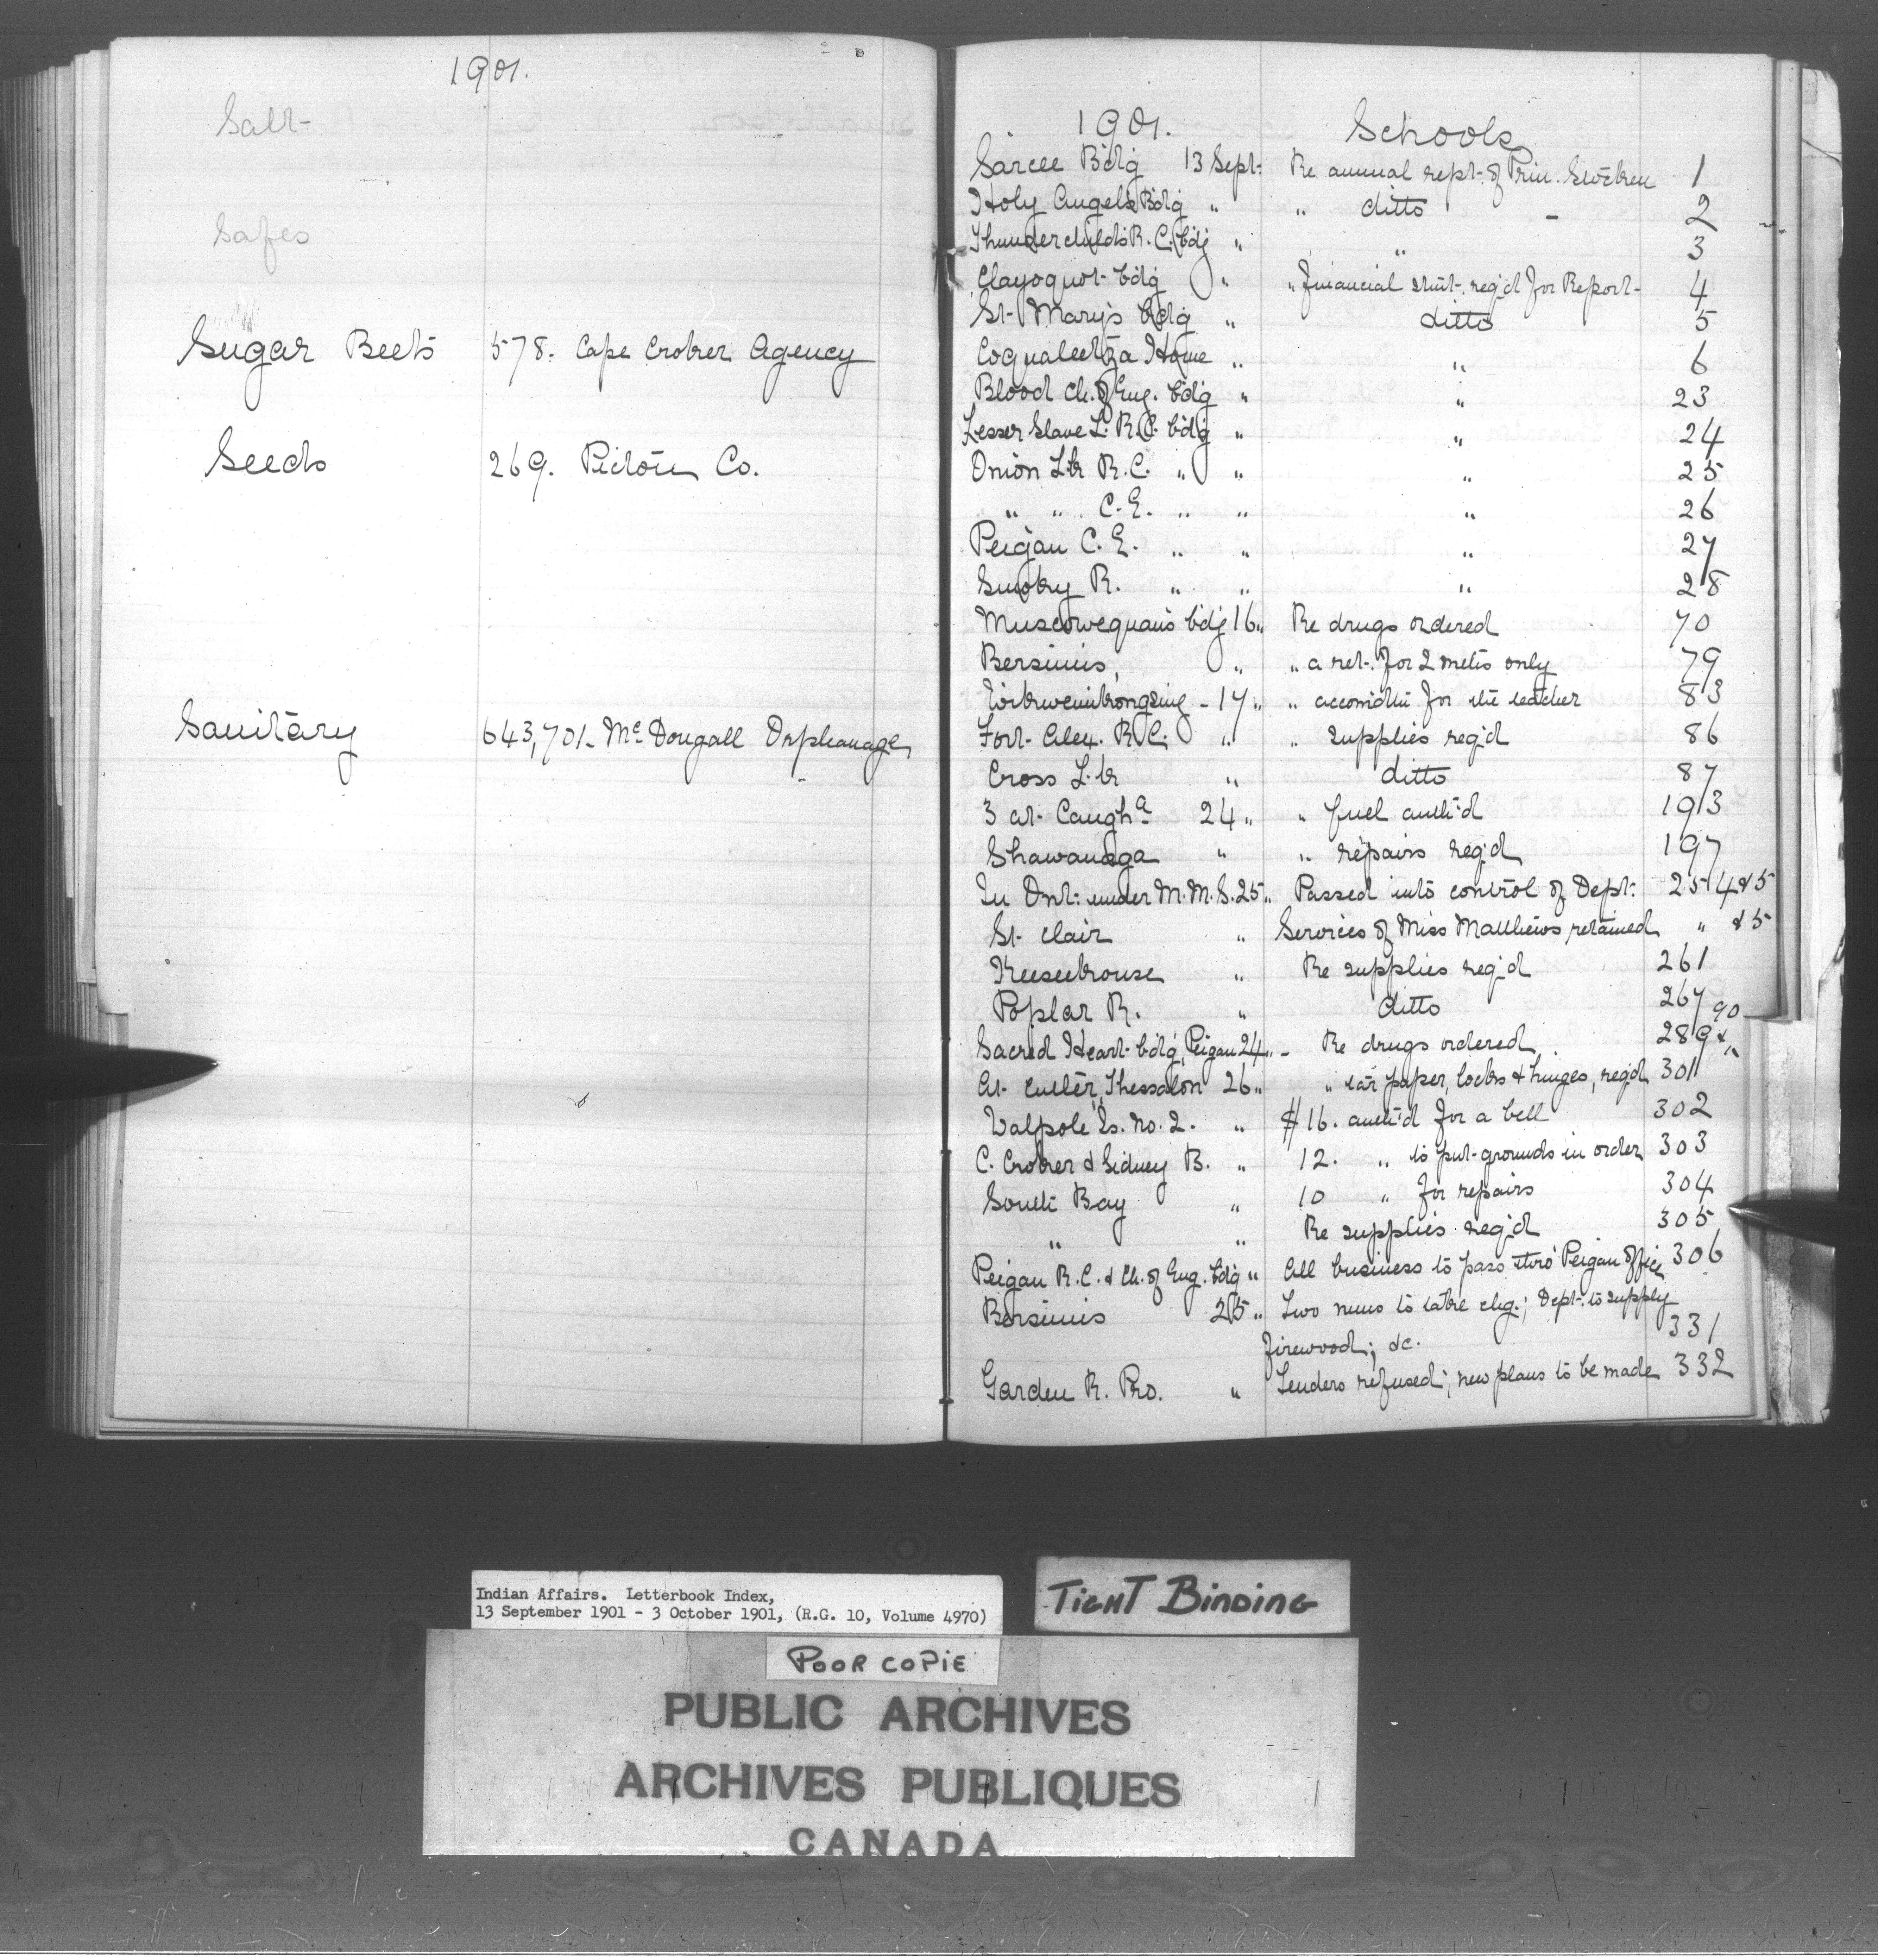 1901.
Salt
Safes
Sugar Beets 578. Cape Croker Agency
Seeds 269. Pictou Co.
Sanitary 643,701. McDougall Orphanage
1901. Schools
Sarcee Bdg 13 Sept. Re annual rept. of Prin. Stocken 1
Holy Angels Bdg " " ditto 2
Thunderchild's R.C. bdg " " 3
Clayoquot bdg " " financial stmt. req'd for Report 4
St. Mary's bdg " ditto 5
Coqualeetza Home " " 6
Blood Ch. of Eng. bdg " " 23
Lesser Slave L. R.C. bdg " " 24
Onion Lk R.C. " " " 25
" " C.E. " " " 26
Peigan C.E. " " " 27
Smoky R. " " " 28
Muscowequan's bdg 16 " Re drugs ordered 70
Bersimis, " " a ret. for 2 mths only 79
17 " " accomdtn for the teacher 83
Fort Alex. R.C. " " supplies req'd 86
Cross Lk " ditto 87
3 at Caugh.a 24 " " fuel auth'd 193
Shawanaga " " repairs req'd 197
In Ont. under M.M.S. 25 " Passed into control of Dept. 254 & 5
St. Clair " Services of Miss Matthews retained " & 5
Keeseekouse " Re supplies req'd 261
Poplar R. " ditto 267
Sacred Heart bdg, Peigan 24 " - Re drugs ordered 289 & 90
At Cutler, Thessalon 26 " " tar paper, locks & hinges, req'd 301
Walpole Is. No. 2. " $16. auth'd for a bell 302
C. Croker & Sidney B. " 12. " to put grounds in order 303
South Bay " 10 " for repairs 304
" " Re supplies req'd 305
Peigan R.C. & Ch. of Eng. bdg " All business to pass thro' Peigan office 306
Bersimis 25 " Two nuns to take chg.; Dept. to supply
firewood; &c. 331
Garden R. Pro. " Tenders refused; new plans to be made 332
Indian Affairs. Letterbook Index,
13 September 1901 - 3 October 1901, (R.G. 10, Volume 4970)
TIGHT BINDING
POOR COPIE
PUBLIC ARCHIVES
ARCHIVES PUBLIQUES
CANADA